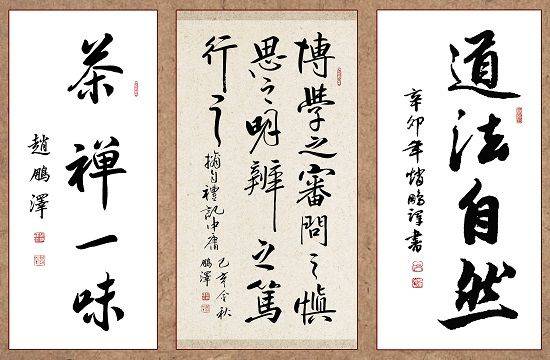 道法自然
辛卯年趙鵬澤書
博學之審問之慎
思之明辨之篤
行之
摘自禮記中庸
己亥金秋
鵬澤
茶禪一味
趙鵬澤